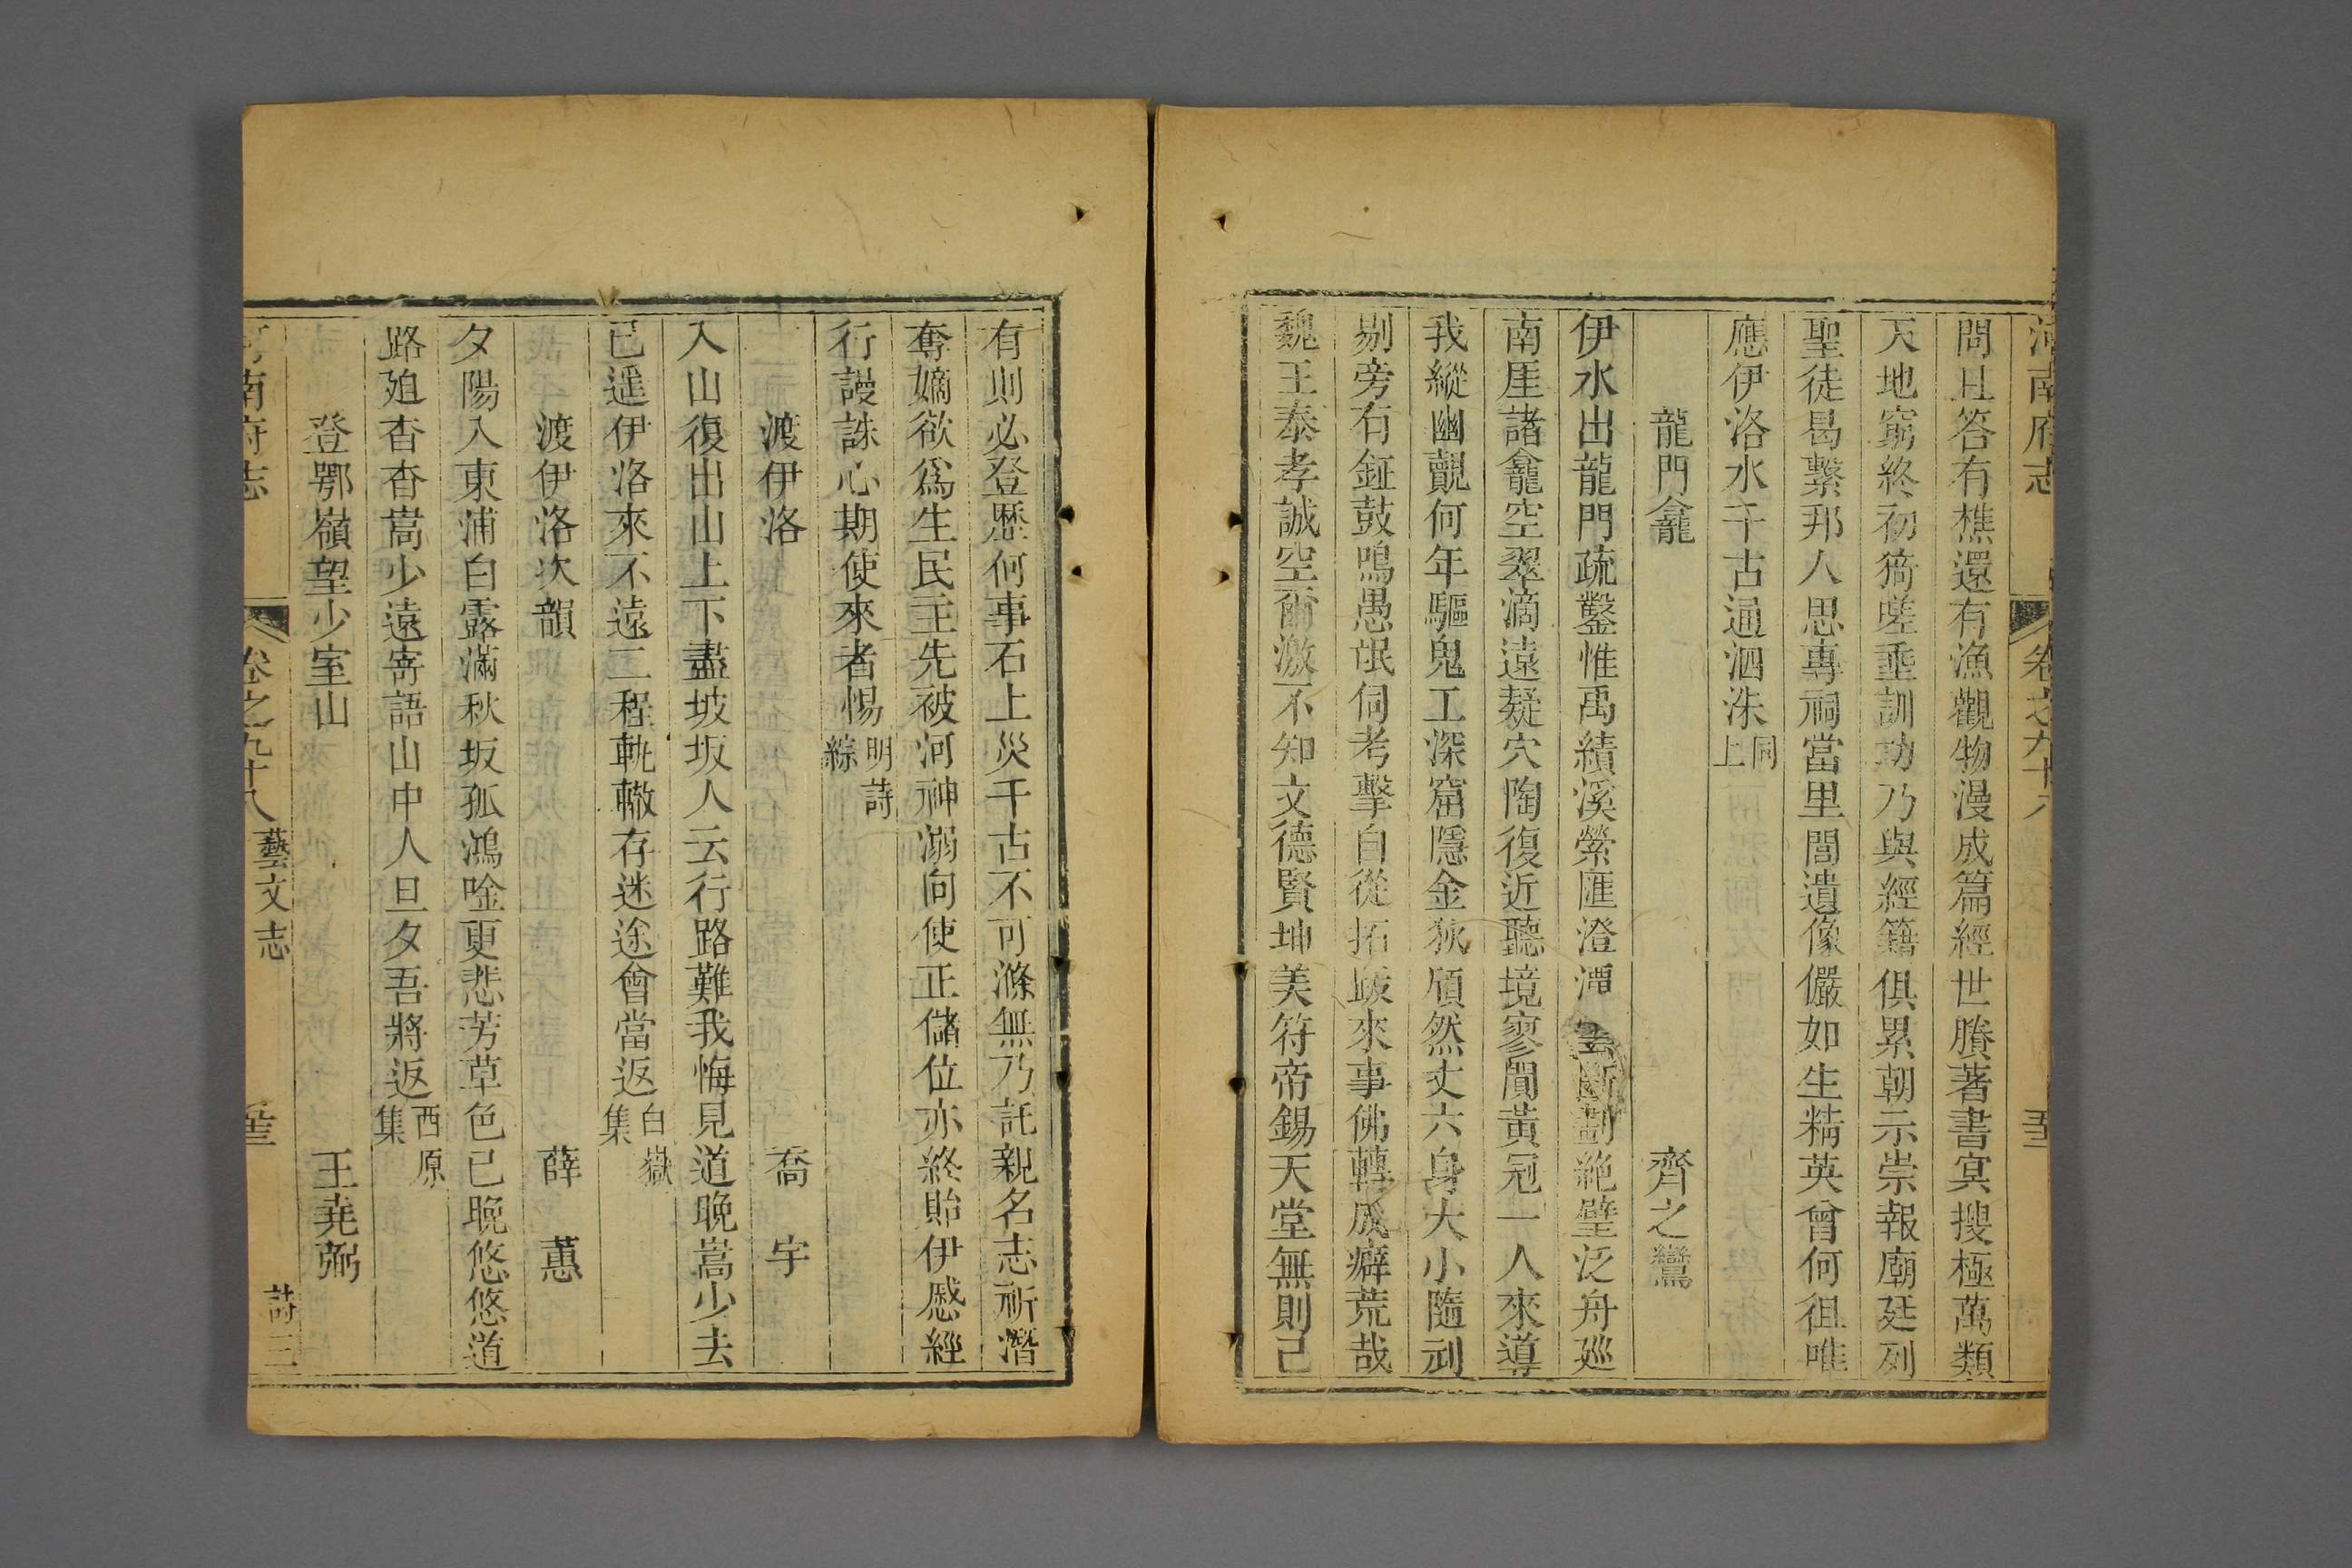 河南府志 卷之九十八
問且答有樵還有漁觀物漫成篇經世賸著書冥搜極萬類
天地窮終初猗嗟垂訓功乃與經籍俱累朝示崇報廟廷列
聖徒曷繫邦人思專祠當里閭遺像儼如生精英曾何徂唯
應伊洛水千古通泗洙同上
龍門龕 齊之鸞
伊水出龍門疏鑿惟禹績溪縈匯澄潭 雲斷劃絶壁泛舟廵
南厓諸龕空翠滴遠疑穴陶復近聽境寥閴黃冠一人來導
我縱幽覿何年驅鬼工深窟隱金狄頎然丈六身大小隨刓
剔旁有鉦鼓鳴愚氓伺考擊自從拓跋來事佛轉成癖荒哉
魏王泰孝誠空爾激不知文德賢坤美符帝錫天堂無則已
有則必登歷何事石上災千古不可滌無乃託親名志祈潛
奪嫡欲爲生民主先被河神溺向使正儲位亦終貽伊慼經
行謾誅心期使來者惕明詩綜
渡伊洛 喬宇
入山復出山上下盡坡坂人云行路難我悔見道晚嵩少去
已遥伊洛來不遠二程軌轍存迷途會當返白巖集
渡伊洛次韻 薛蕙
夕陽入東浦白露滿秋坂孤鴻唫更悲芳草色已晚悠悠道
路廹杳杳嵩少遠寄語山中人旦夕吾將返西原集
登鄂嶺望少室山 王堯弼
河南府志 卷之九十八 藝文志 詩三